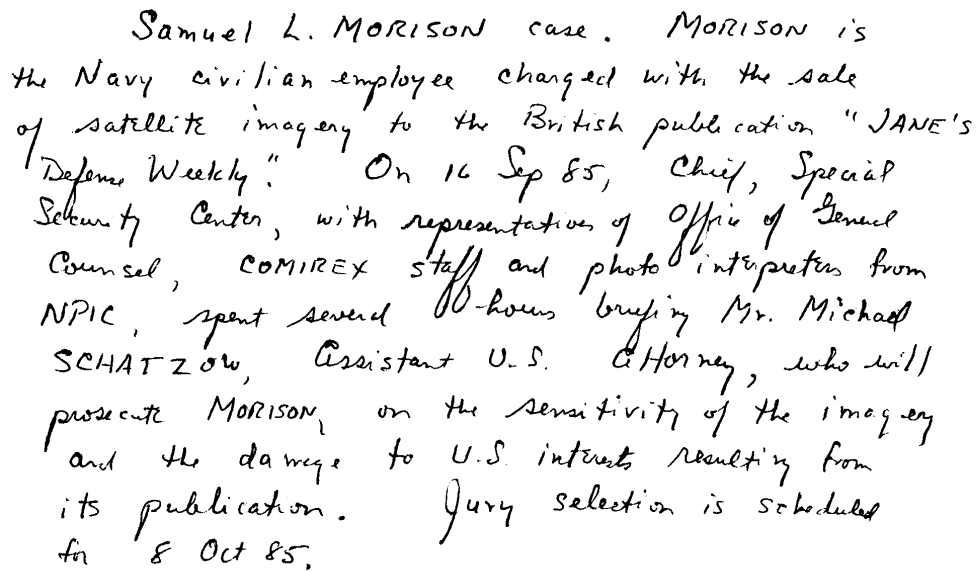 Samuel L. MORISON case. MORISON is
the Navy civilian employee charged with the sale
of satellite imagery to the British publication "JANE'S
Defense Weekly". On 16 Sep 85, Chief, Special
Security Center, with representatives of Office of General
Counsel, COMIREX staff and photo interpreters from
NPIC, spent several hours briefing Mr. Michael
SCHATZOW, Assistant U.S. Attorney, who will
prosecute MORISON, on the sensitivity of the imagery
and the damage to U.S. interests resulting from
its publication. Jury selection is scheduled
for 8 Oct 85.